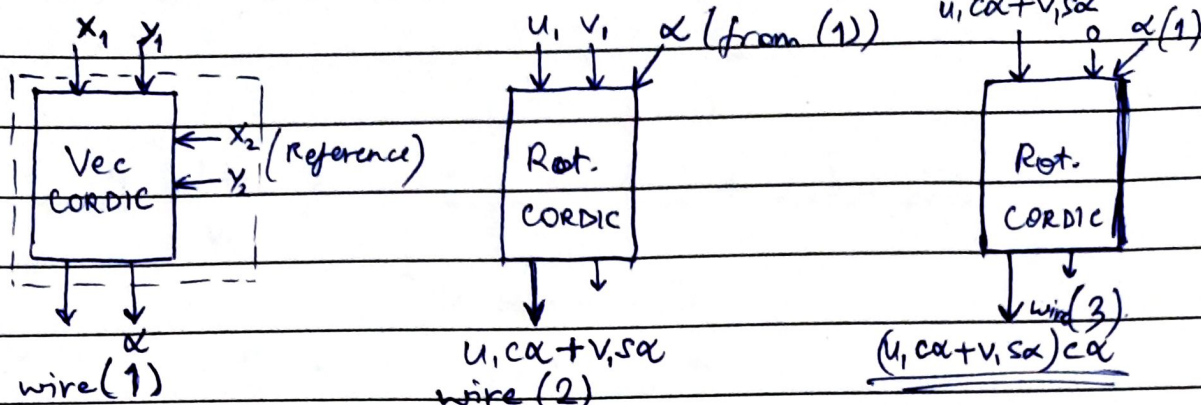 x₁ y₁
Vec
CORDIC
x₂
y₂
(Reference)
α
wire(1)
u₁ v₁ α (from (1))
Rot.
CORDIC
u₁cα+v₁sα
wire (2)
u₁cα+v₁sα
0 α(1)
Rot.
CORDIC
wire(3)
(u₁cα+v₁sα)cα